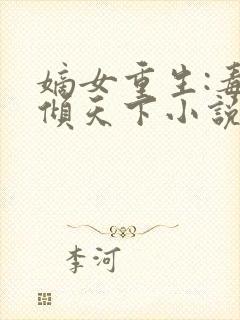 嫡女重生:毒
倾天下小説
李河